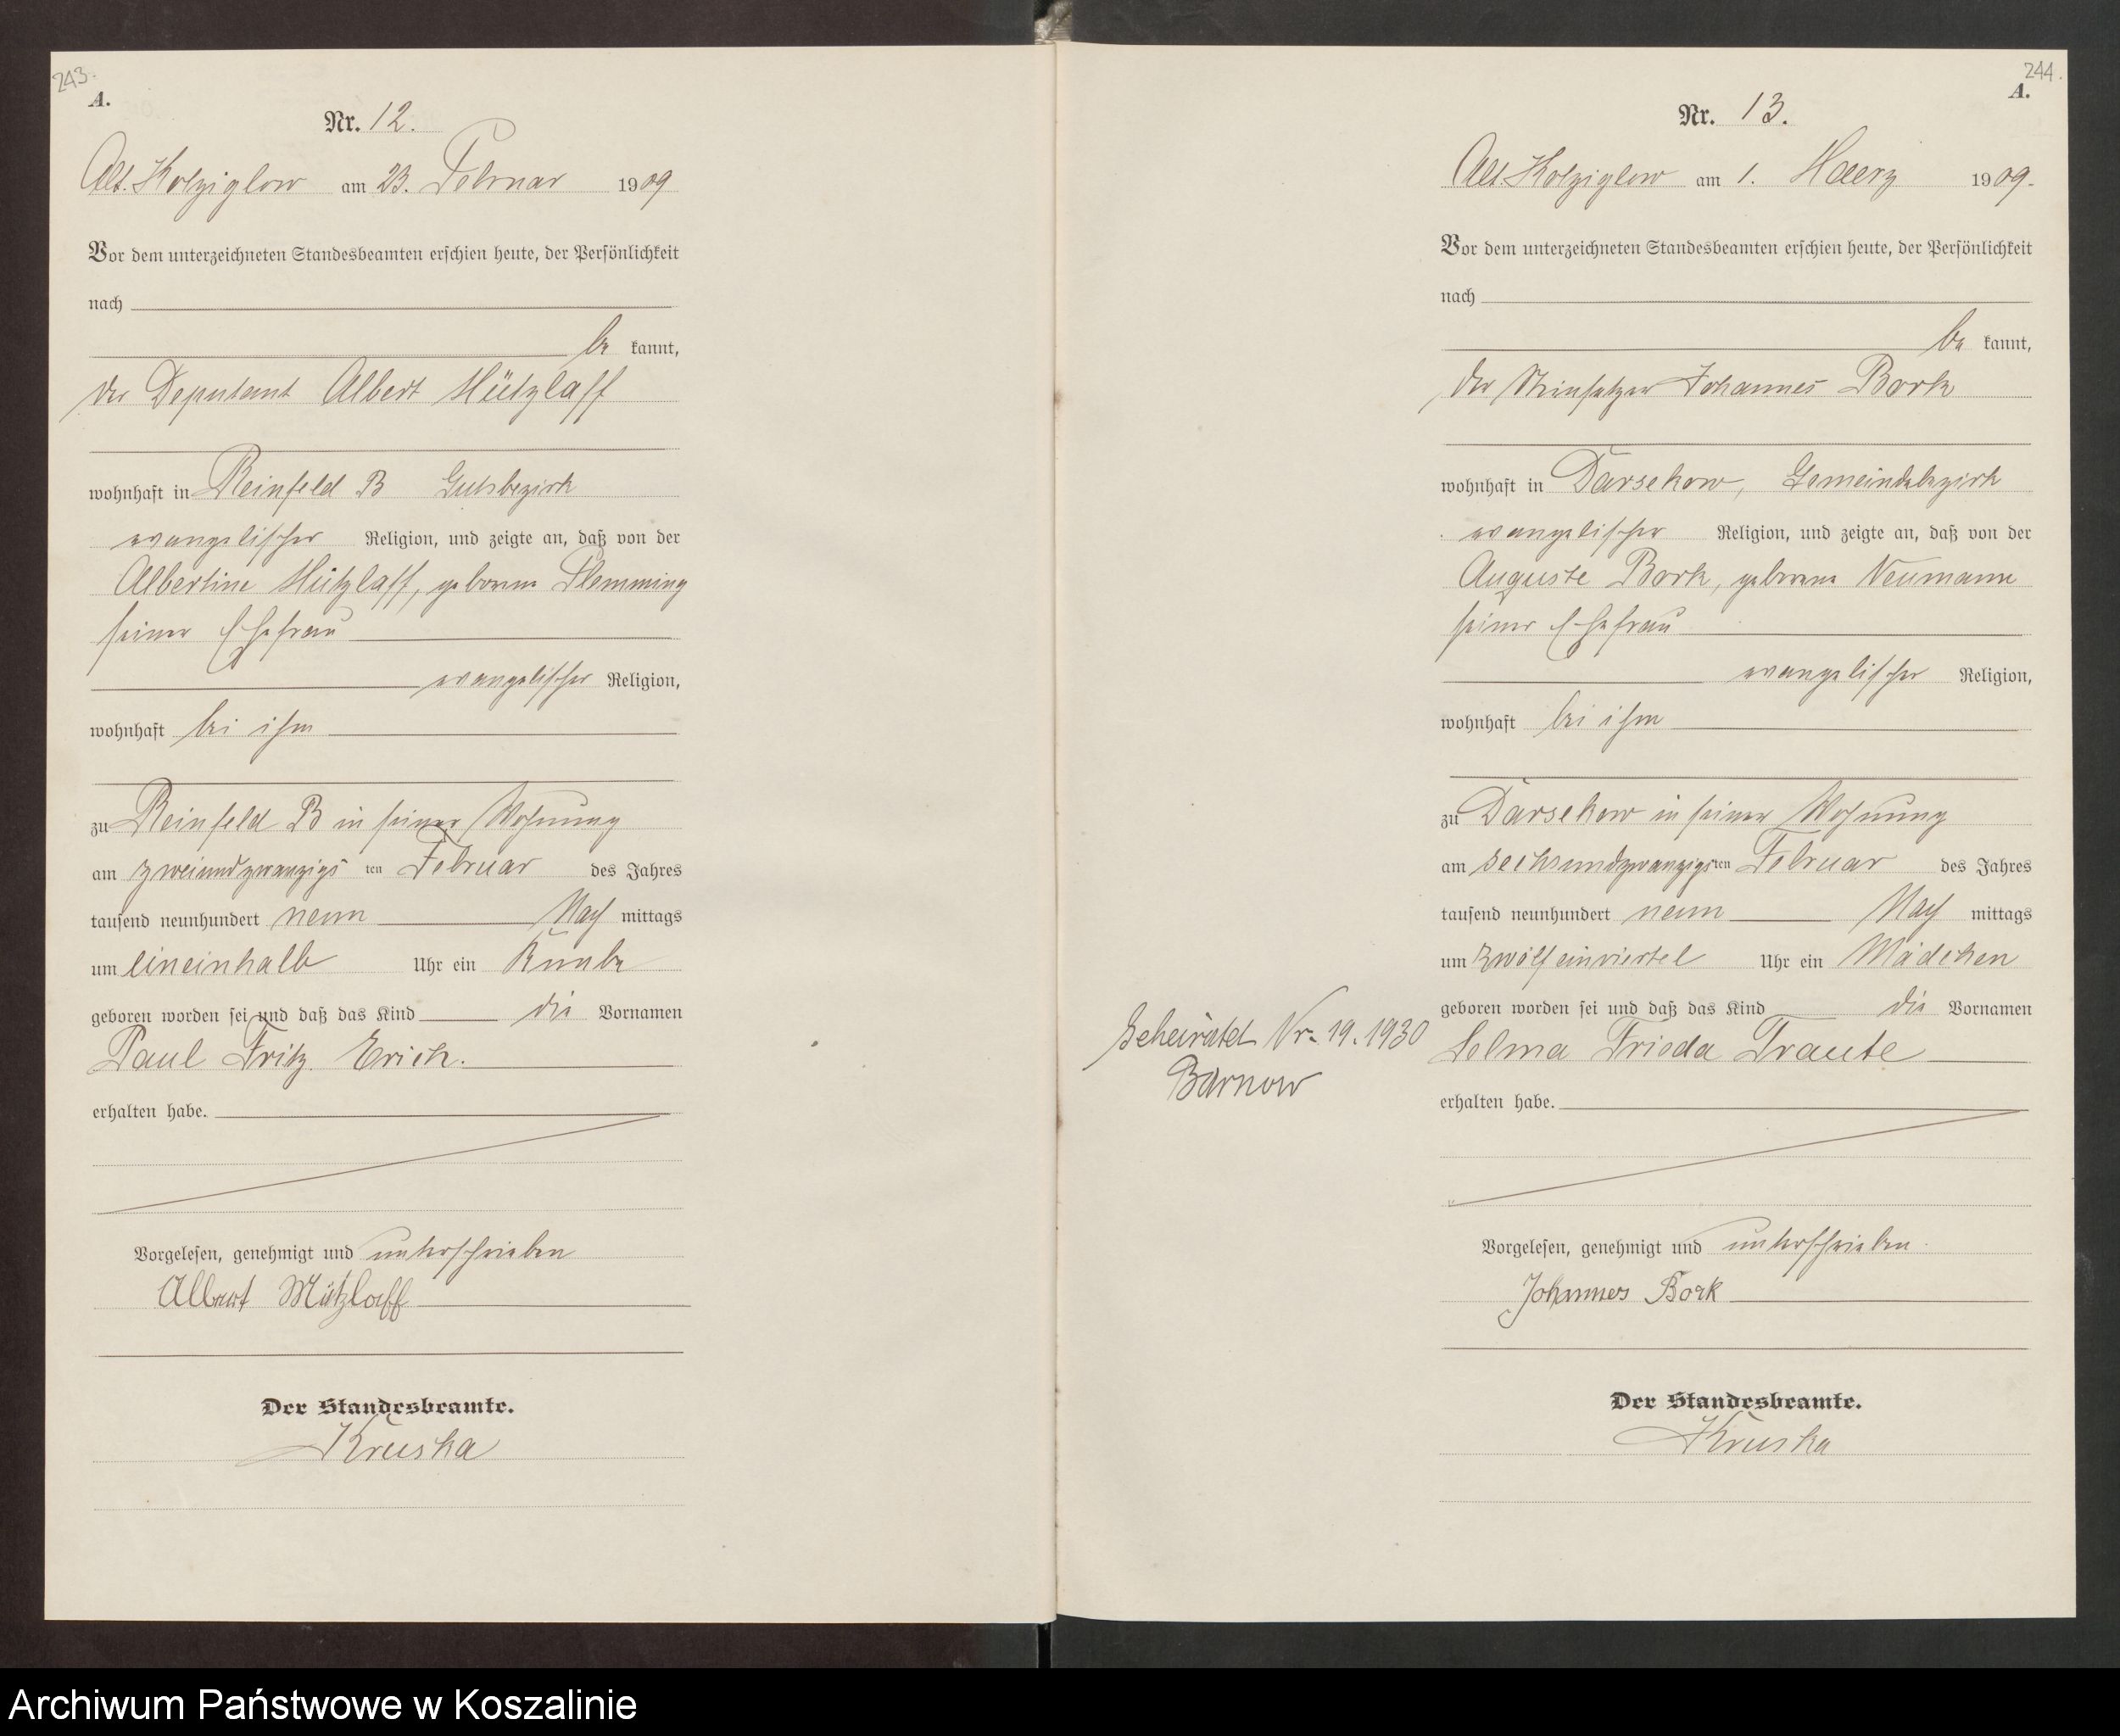 243.
A.
Nr. 12.
Alt. Kolziglow am 23. Februar 1909
Vor dem unterzeichneten Standesbeamten erschien heute, der Persönlichkeit
nach
be kannt,
der Deputant Albert Mützlaff
wohnhaft in Reinfeld B Gutsbezirk
evangelischer Religion, und zeigte an, daß von der
Albertine Mützlaff, geborene Flemming
seiner Ehefrau
evangelischer Religion,
wohnhaft bei ihm
zu Reinfeld B in seiner Wohnung
am zweiundzwanzigs ten Februar des Jahres
tausend neunhundert neun Nach mittags
um eineinhalb Uhr ein Knabe
geboren worden sei und daß das Kind die Vornamen
Paul Fritz Erich.
erhalten habe.
Vorgelesen, genehmigt und unterschrieben
Albert Mützlaff
Der Standesbeamte.
Kruska
244.
A.
Nr. 13.
Alt. Kolziglow am 1. Maerz 1909.
Vor dem unterzeichneten Standesbeamten erschien heute, der Persönlichkeit
nach
be kannt,
der Steinsetzer Johannes Bork
wohnhaft in Darsekow, Gemeindebezirk
evangelischer Religion, und zeigte an, daß von der
Auguste Bork, geborene Neumann
seiner Ehefrau
evangelischer Religion,
wohnhaft bei ihm
zu Darsekow in seiner Wohnung
am sechsundzwanzigsten Februar des Jahres
tausend neunhundert neun Nach mittags
um zwölfeinviertel Uhr ein Mädchen
geboren worden sei und daß das Kind die Vornamen
Selma Frieda Traute
erhalten habe.
Geheiratet Nr. 19.1930
Barnow
Vorgelesen, genehmigt und unterschrieben
Johannes Bork
Der Standesbeamte.
Kruska
Archiwum Państwowe w Koszalinie